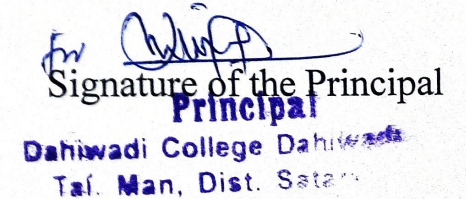 for
Signature of the Principal
Principal
Dahiwadi College Dahiwadi
Tal. Man, Dist. Satara